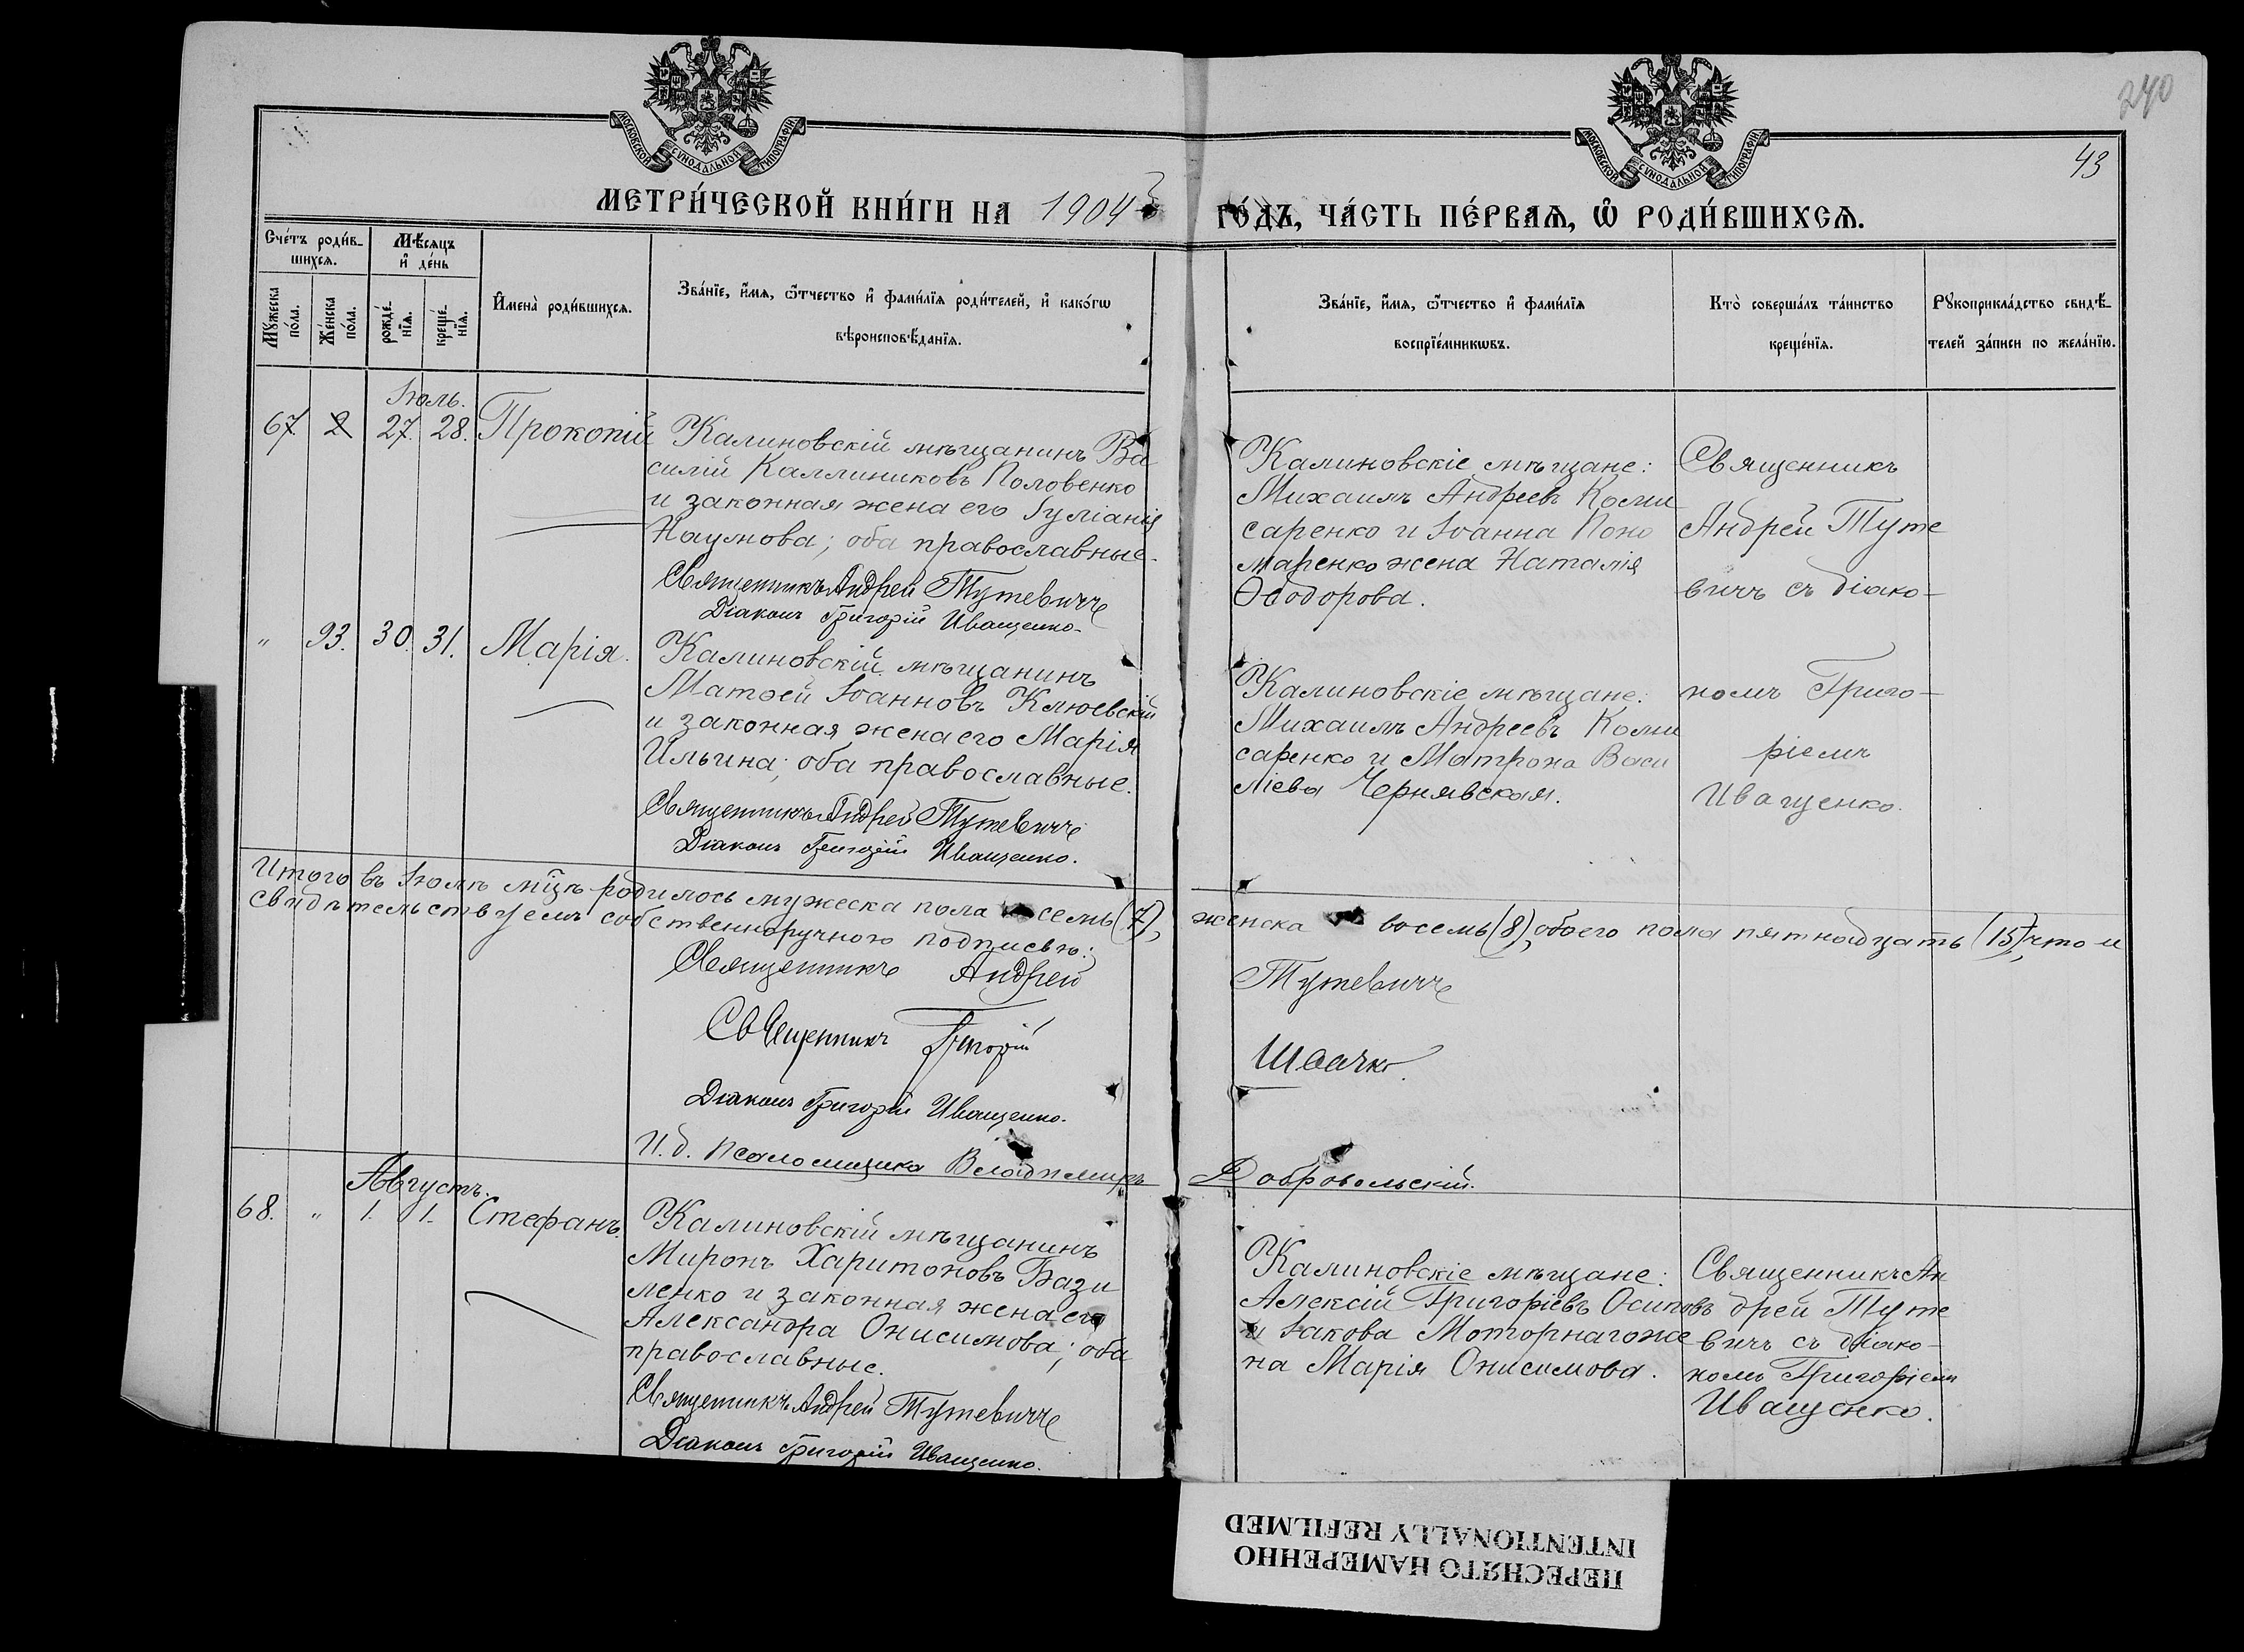 240
43
МОСКОВСКОЙ СѴНОДАЛЬНОЙ ТИПОГРАФІИ
МОСКОВСКОЙ СѴНОДАЛЬНОЙ ТИПОГРАФІИ
МЕТРИ́ЧЕСКОЙ КНИ́ГИ НА 1904 ГО́ДЪ, ЧА́СТЬ ПЕ́РВАѦ, Ѿ РОДИ́ВШИХСѦ.
Сче́тъ роди́в-
шихсѧ.
Мꙋ́жеска
по́ла.
Же́нска
по́ла.
Мѣ́сяцъ
и҆ де́нь
рожде́-
нїѧ.
креще́-
нїѧ.
И҆мена̀ роди́вшихсѧ.
Зва́нїе, и҆́мѧ, ѻ҆́тчество и҆ фами́лїѧ роди́телей, и҆ како́гѡ
вѣроисповѣ́данїѧ.
Зва́нїе, и҆́мѧ, ѻ҆́тчество и҆ фами́лїѧ
воспрїе́мникѡвъ.
Кто̀ соверша́лъ та́инство
креще́нїѧ.
Рꙋкоприкла́дство свидѣ́-
телей за́писи по жела́нїю.
Іюль.
67. 27. 28. Прокопій
Калиновскій мѣщанинъ Ва
силій Каллиниковъ Половенко
и законная жена его Іуліанія
Наумова; оба православные.
Священникъ Андрей Тутевичъ
Діаконъ Григорій Иващенко.
Калиновскіе мѣщане:
Михаилъ Андреевъ Коми
саренко и Іоанна Поно
маренко жена Наталія
Ѳеодорова.
Священникъ
Андрей Туте
вичъ съ діако-
номъ Григо-
ріемъ
Иващенко.
" 93. 30. 31. Марія.
Калиновскій мѣщанинъ
Матѳей Іоанновъ Клюевскій
и законная жена его Марія
Ильина; оба православные.
Священникъ Андрей Тутевичъ
Діаконъ Григорій Иващенко.
Калиновскіе мѣщане:
Михаилъ Андреевъ Коми
саренко и Матрона Васи
ліева Чернявская.
Итого въ Іюлѣ мѣцѣ родилось мужеска пола семь (7), женска восемь (8), обоего пола пятнадцать (15), что и
свидѣтельствуемъ собственноручною подписью:
Священникъ Андрей Тутевичъ
Священникъ Григорій Швачко.
Діаконъ Григорій Иващенко.
И. д. псаломщика Владимиръ Добровольскій.
Августъ.
68. " 1. 1. Стефанъ.
Калиновскій мѣщанинъ
Миронъ Харитоновъ Бази
ленко и законная жена его
Александра Онисимова; оба
православные.
Священникъ Андрей Тутевичъ
Діаконъ Григорій Иващенко.
Калиновскіе мѣщане:
Алексій Григоріевъ Осиповъ
и Іакова Моторнаго же
на Марія Онисимова.
Священникъ Ан
дрей Туте
вичъ съ діако-
номъ Григоріемъ
Иващенко.
ПЕРЕСНЯТО НАМЕРЕННО
INTENTIONALLY REFILMED